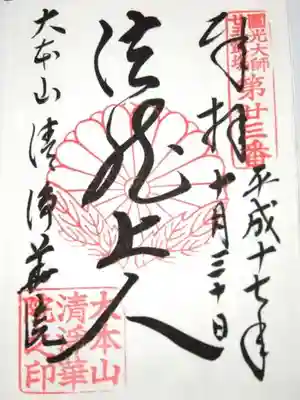 圓光大師
廿五霊場
第廿三番
平成十七年
奉拝 十月三十日
法然上人
大本山 清浄華院
大本山
清浄華
院之印